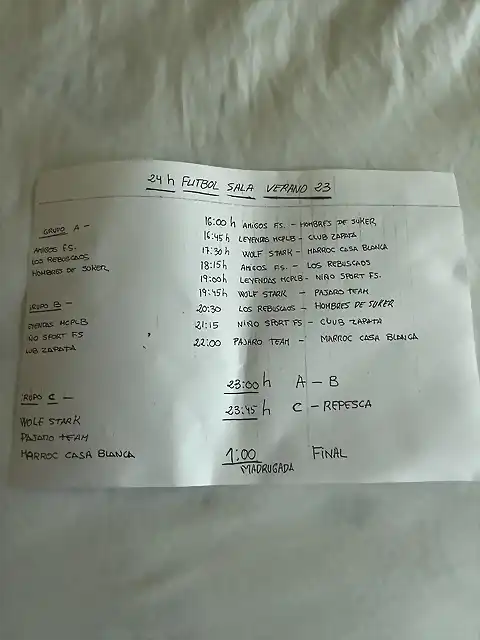 24 h FUTBOL SALA VERANO 23
GRUPO A -
AMIGOS F.S.
LOS REBUSCADOS
HOMBRES DE SUKER
GRUPO B -
LEYENDAS MCPLB
NIÑO SPORT FS
CLUB ZAPATA
GRUPO C -
WOLF STARK
PAJARO TEAM
MARROC CASA BLANCA
16:00 h AMIGOS F.S. - HOMBRES DE SUKER
16:45 h LEYENDAS MCPLB - CLUB ZAPATA
17:30 h WOLF STARK - MARROC CASA BLANCA
18:15 h AMIGOS F.S. - LOS REBUSCADOS
19:00 h LEYENDAS MCPLB - NIÑO SPORT FS.
19:45 h WOLF STARK - PAJARO TEAM
20:30 LOS REBUSCADOS - HOMBRES DE SUKER
21:15 NIÑO SPORT FS - CLUB ZAPATA
22:00 PAJARO TEAM - MARROC CASA BLANCA
23:00 h A - B
23:45 h C - REPESCA
1:00 FINAL
MADRUGADA